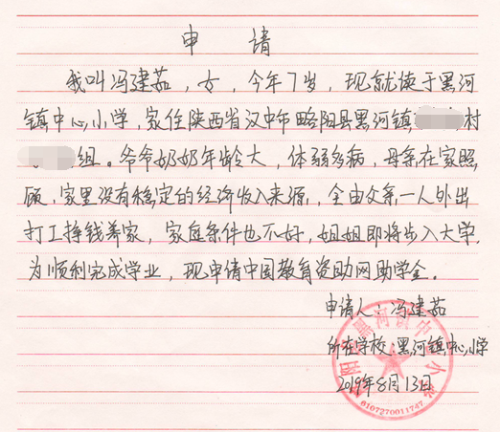 申 请
我叫冯建茹，女，今年7岁，现就读于黑河
镇中心小学，家住陕西省汉中市略阳县黑河镇 村
组。爷爷奶奶年龄大，体弱多病，母亲在家照
顾，家里没有稳定的经济收入来源，全由父亲一人外出
打工挣钱养家，家庭条件也不好，姐姐即将步入大学，
为顺利完成学业，现申请中国教育资助网助学金。
申请人：冯建茹
所在学校：黑河镇中心小学
2019年8月13日
阳 黑河镇中心小学